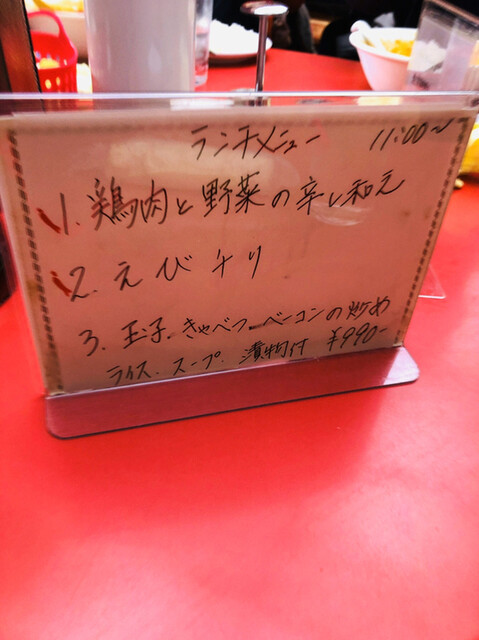 ランチメニュー 11:00〜
1. 鶏肉と野菜の辛し和え
2. えびチリ
3. 玉子.きゃべつ.ベーコンの炒め
ライス. スープ. 漬物付 ¥990-